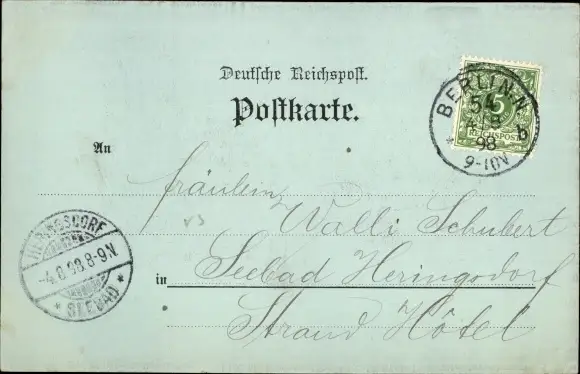 Deutsche Reichspost.
Postkarte.
BERLIN. N
54
4/8
98
9-10V
b
5
REICHSPOST
An
fräulein
Walli Schubert
in Seebad Heringsdorf
Strand Hôtel
HERINGSDORF
-4.8.98.8-9.N
* SEEBAD *